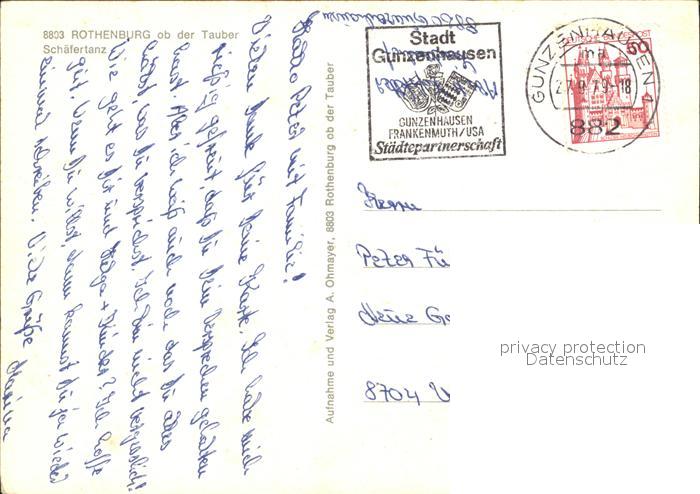 8803 ROTHENBURG ob der Tauber
Schäfertanz
Hallo Peter mit Familie!
Vielen Dank für Deine Karte. Ich habe mich
riesig gefreut, daß Du Dein Versprechen gehalten
hast. Aber ich weiß auch noch das Du alles
hältst, was Du versprichst. Ich bin nicht vergesslich!
Wie geht es Dir und Helga + Kinder? Ich hoffe
gut. Wenn Du willst, dann kannst Du ja wieder
einmal schreiben. Viele Grüße Marina
Aufnahme und Verlag A. Ohmayer, 8803 Rothenburg ob der Tauber
8820 Gunzenhausen
Stadt
Gunzenhausen
GUNZENHAUSEN
FRANKENMUTH/USA
Städtepartnerschaft
GUNZENHAUSEN 1
mb
-18
882
DEUTSCHE BUNDESPOST
50
Herrn
Peter Fü
Neue G
8704 U
privacy protection
Datenschutz